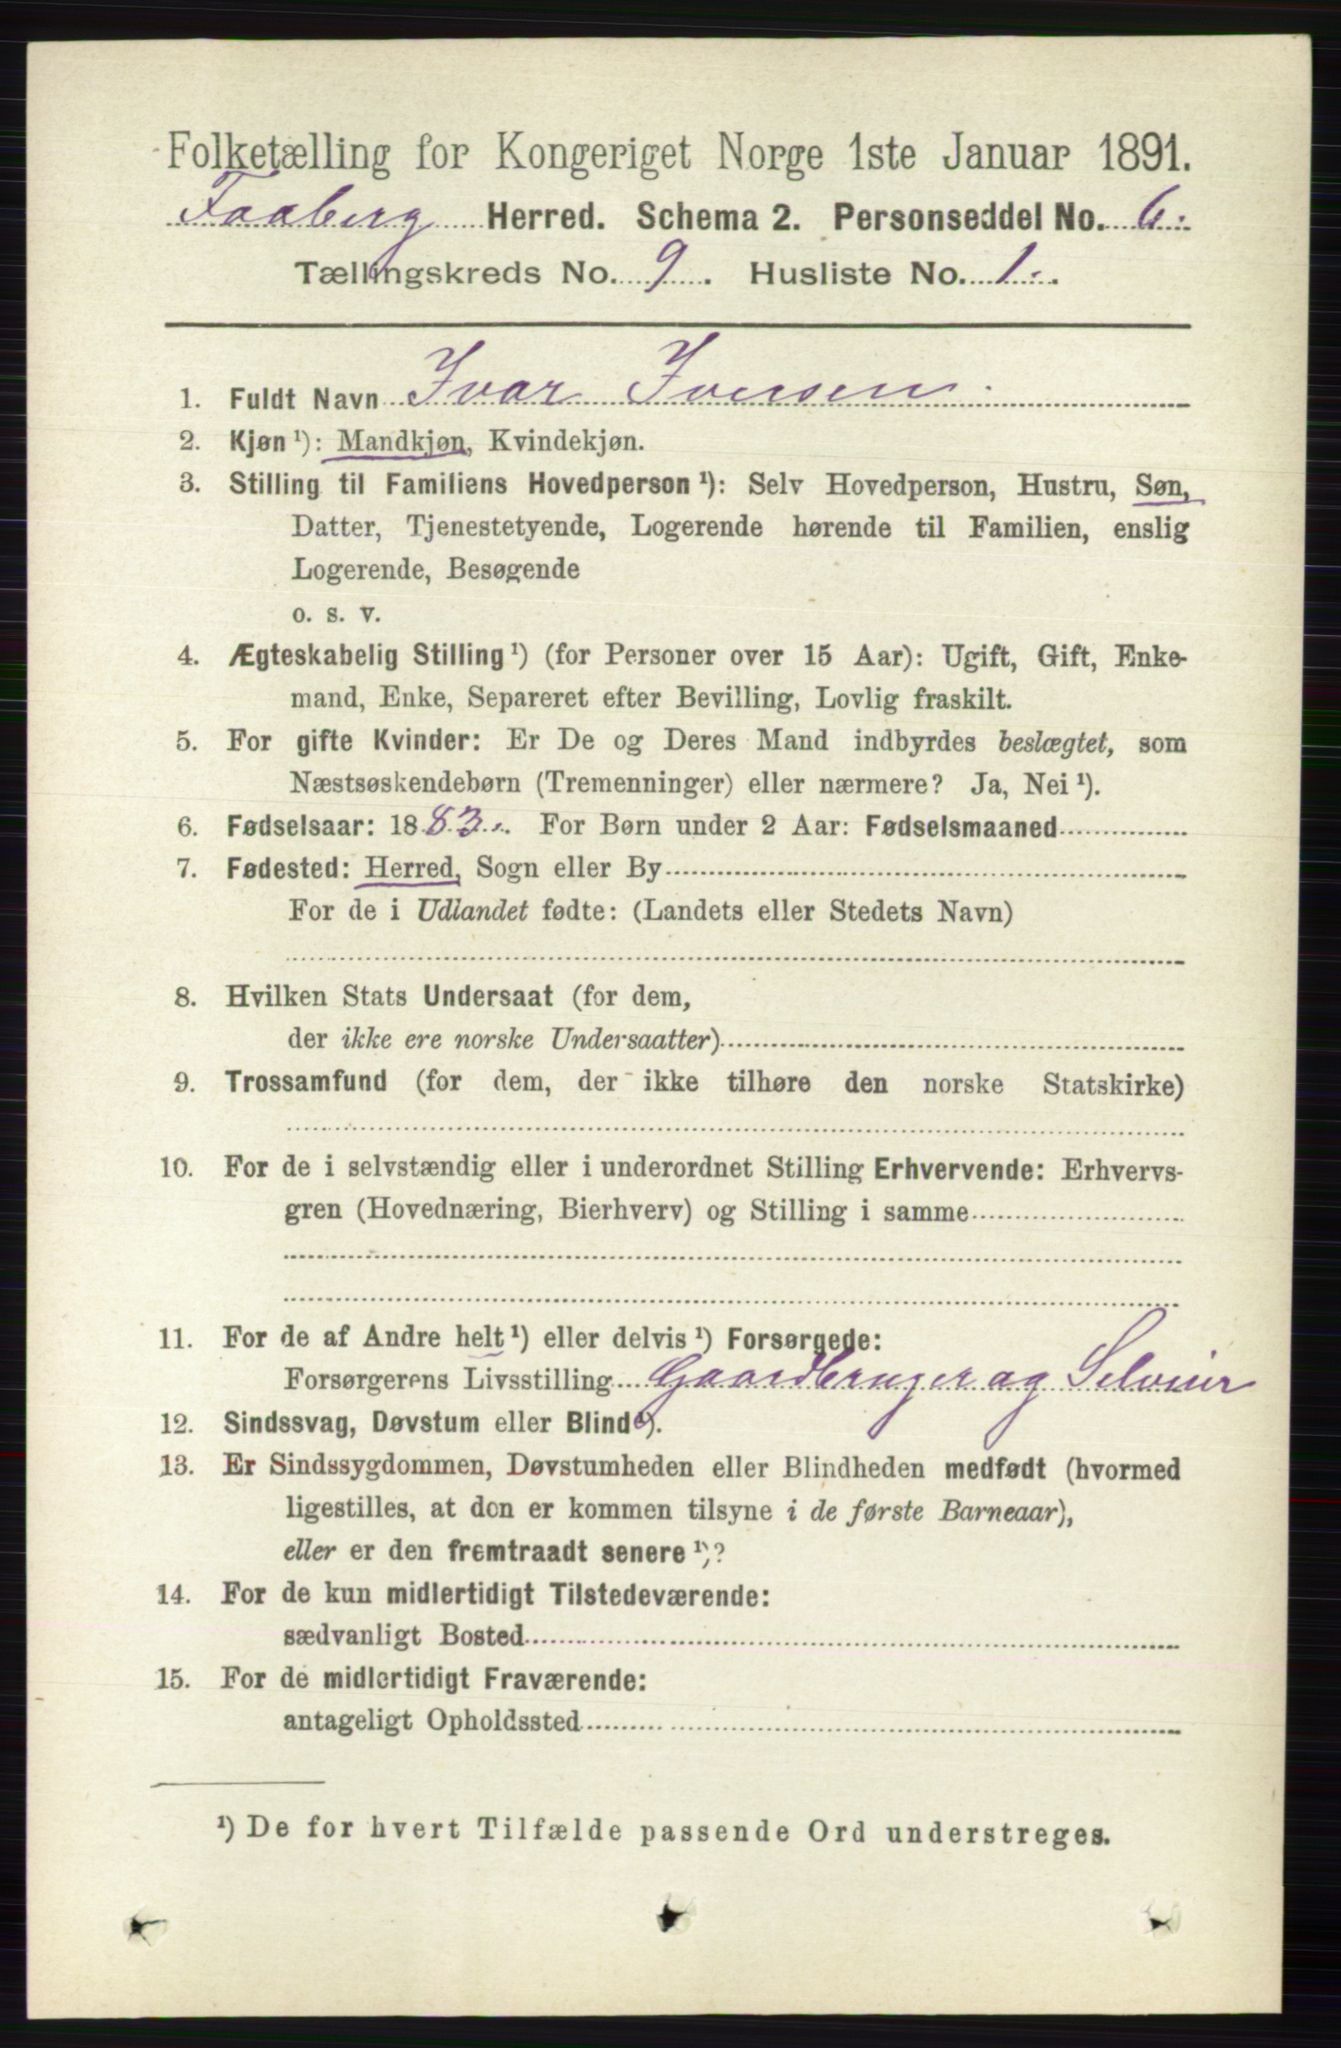 Folketælling for Kongeriget Norge 1ste Januar 1891.
Faaberg Herred. Schema 2. Personseddel No. 6.
Tællingskreds No. 9. Husliste No. 1.
1. Fuldt Navn Ivar Iversen
2. Kjøn ¹): Mandkjøn, Kvindekjøn.
3. Stilling til Familiens Hovedperson ¹): Selv Hovedperson, Hustru, Søn,
Datter, Tjenestetyende, Logerende hørende til Familien, enslig
Logerende, Besøgende
o. s. v.
4. Ægteskabelig Stilling ¹) (for Personer over 15 Aar): Ugift, Gift, Enke-
mand, Enke, Separeret efter Bevilling, Lovlig fraskilt.
5. For gifte Kvinder: Er De og Deres Mand indbyrdes beslægtet, som
Næstsøskendebørn (Tremenninger) eller nærmere? Ja, Nei ¹).
6. Fødselsaar: 1883. For Børn under 2 Aar: Fødselsmaaned
7. Fødested: Herred, Sogn eller By
For de i Udlandet fødte: (Landets eller Stedets Navn)
8. Hvilken Stats Undersaat (for dem,
der ikke ere norske Undersaatter)
9. Trossamfund (for dem, der ikke tilhøre den norske Statskirke)
10. For de i selvstændig eller i underordnet Stilling Erhvervende: Erhvervs-
gren (Hovednæring, Bierhverv) og Stilling i samme
11. For de af Andre helt ¹) eller delvis ¹) Forsørgede:
Forsørgerens Livsstilling Gaardbruger og Selveier
12. Sindssvag, Døvstum eller Blind ¹).
13. Er Sindssygdommen, Døvstumheden eller Blindheden medfødt (hvormed
ligestilles, at den er kommen tilsyne i de første Barneaar),
eller er den fremtraadt senere ¹)?
14. For de kun midlertidigt Tilstedeværende:
sædvanligt Bosted
15. For de midlertidigt Fraværende:
antageligt Opholdssted
¹) De for hvert Tilfælde passende Ord understreges.